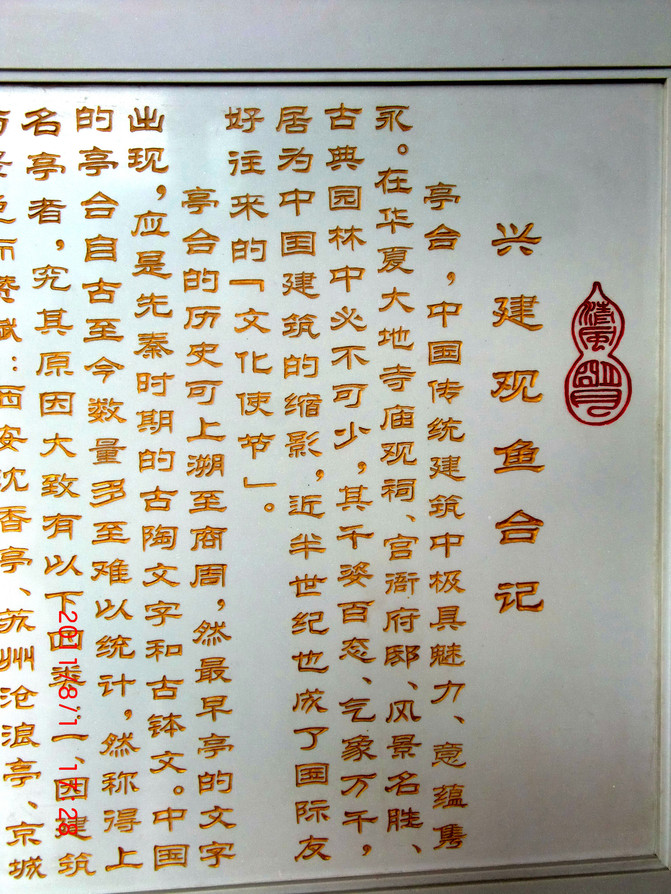 兴建观鱼台记
亭台,中国传统建筑中极具魅力、意蕴隽
永。在华夏大地寺庙观祠、宫衙府邸、风景名胜、
古典园林中必不可少,其千姿百态、气象万千,
居为中国建筑的缩影,近半世纪也成了国际友
好往来的「文化使节」。
亭台的历史可上溯至商周,然最早亭的文字
出现,应是先秦时期的古陶文字和古钵文。中国
的亭台自古至今数量多至难以统计,然称得上
名亭者,究其原因大致有以下四类:一、因建筑
西安沈香亭、苏州沧浪亭、京城